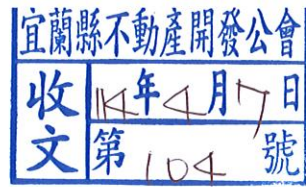 宜蘭縣不動產開發公會
收文
114年4月7日
第104號